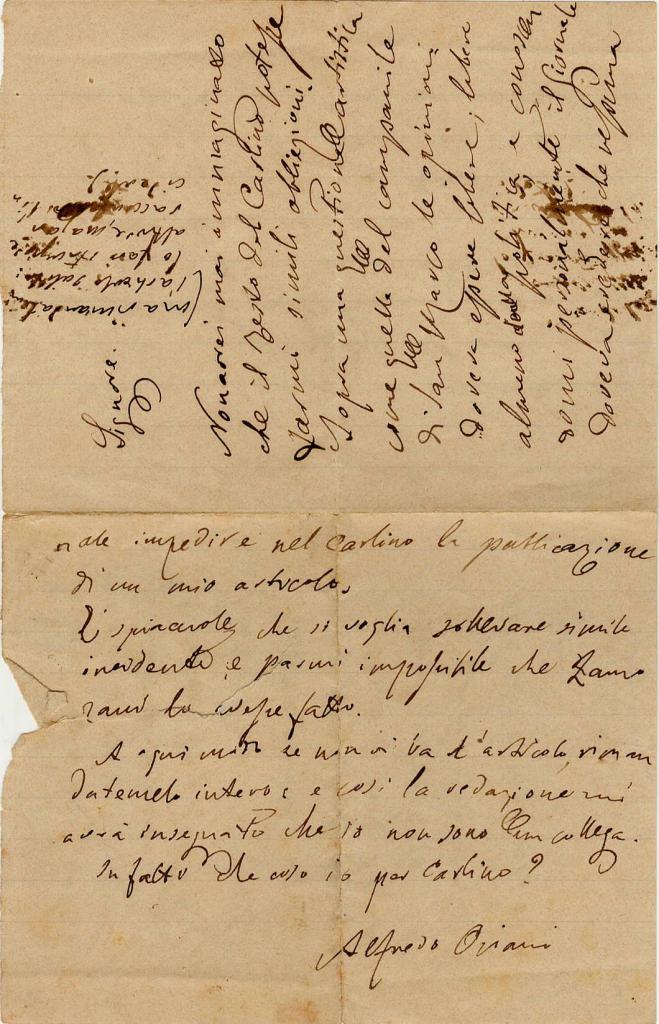 Signore.
Non avrei mai immaginato
che il Resto del Carlino potesse
farmi simili obbiezioni.
Sopra una questione artistica
come quella del campanile
di San Marco le opinioni
dovevano essere libere, libere
almeno politica e
personalmente il Giornale
doveva che nessuna
(ma rimandate
l'articolo subito:
lo farò stampare
altrove, magari
nale impedire nel Carlino la pubblicazione
di un mio articolo.
È spiacevole che si voglia sollevare simile
incidente, e parmi impossibile che Zamo
rani lo avesse fatto.
A ogni modo se non vi va l'articolo, riman
datemelo intero: e così la redazione mi
avrà insegnato che io non sono un collega.
Infatti che cosa io per Carlino?
Alfredo Oriani